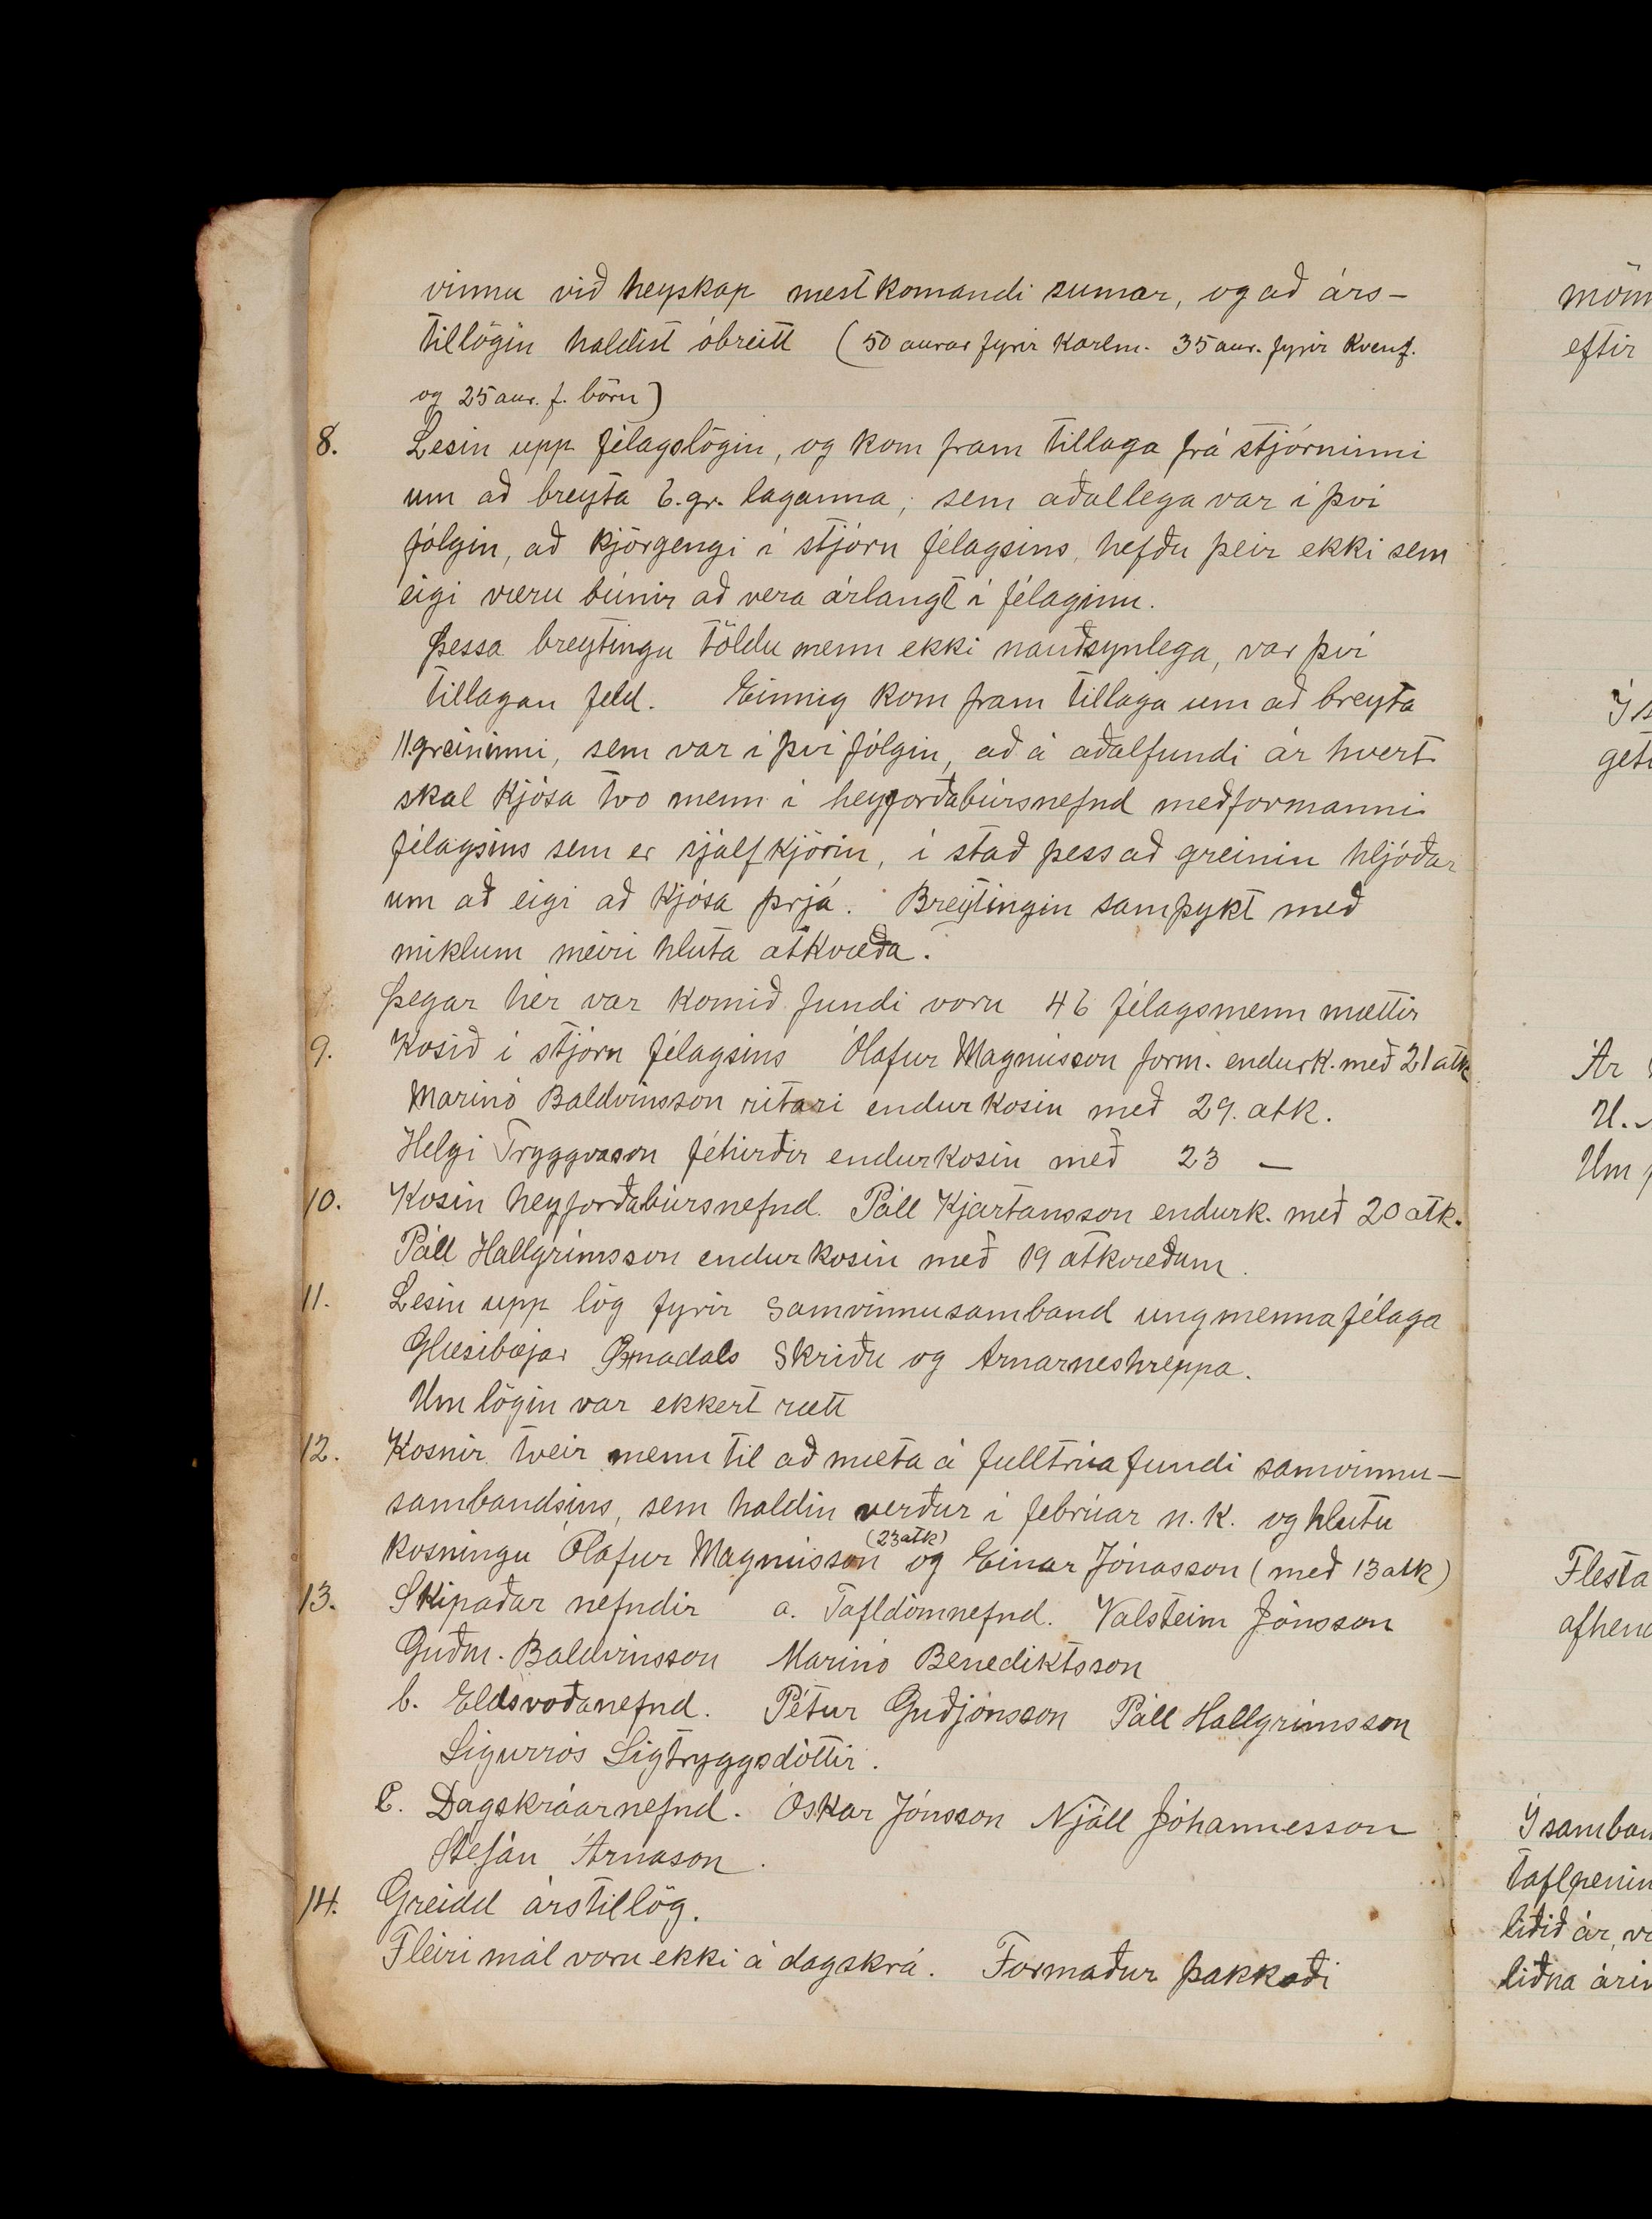 vinnu við heyskap mestkomandi sumar, og að árs-
tillögin haldist óbreitt (50 aurar fyrir karlm. 35 aur. fyrir kvenf.
og 25 aur. f. börn)
8. Lesin upp félagslögin, og kom fram tillaga frá stjórninni
um að breyta 6. gr. laganna, sem aðallega var í því
fólgin, að kjörgengi í stjórn félagsins, hefðu þeir ekki sem
eigi væru búnir að vera árlangt í félaginu.
Þessa breytingu töldu menn ekki nauðsynlega, var því
tillagan feld. Einnig kom fram tillaga um að breyta
11.greininni, sem var í því fólgin, að á aðalfundi ár hvert
skal kjósa tvo menn í heyforðabúrsnefnd með formanni
félagsins sem er sjálfkjörin, í stað þess að greinin hljóðar
um að eigi að kjósa þrjá. Breytingin samþykt með
miklum meiri hluta atkvæða.
Þegar hér var komið fundi voru 46 félagsmenn mættir
9. Kosið í stjórn félagsins Ólafur Magnússon form. endurk. með 21 atk
Marinó Baldvinsson ritari endurkosin með 29. atk.
Helgi Tryggvason féhirðir endurkosin með 23 —
10. Kosin heyforðabúrsnefnd. Páll Kjartansson endurk. með 20 atk.
Páll Hallgrímsson endurkosin með 19 atkvæðum.
11. Lesin upp lög fyrir samvinnusamband ungmennafélaga
Glæsibæjar Öxnadals Skriðu og Arnarneshreppa.
Um lögin var ekkert rætt
12. Kosnir tveir menn til að mæta á fulltrúafundi samvinnu-
sambandsins, sem haldin verður í febrúar n.k. og hlutu
kosningu Ólafur Magnússon (23 atk) og Einar Jónasson (með 13 atk)
13. Skipaðar nefndir a. Tafldómnefnd. Valsteinn Jónsson
Guðm. Baldvinsson Marinó Benediktsson
b. Eldsvoðanefnd. Pétur Guðjónsson Páll Hallgrímsson
Sigurrós Sigtryggsdóttir.
C. Dagskráarnefnd. Óskar Jónsson Njáll Jóhannesson
Stefán Árnason.
14. Greidd árstillög.
Fleiri mál voru ekki á dagskrá. Formaður þakkaði
eftir
Ár
U.
Um
Flesta
liðið ár,
liðna